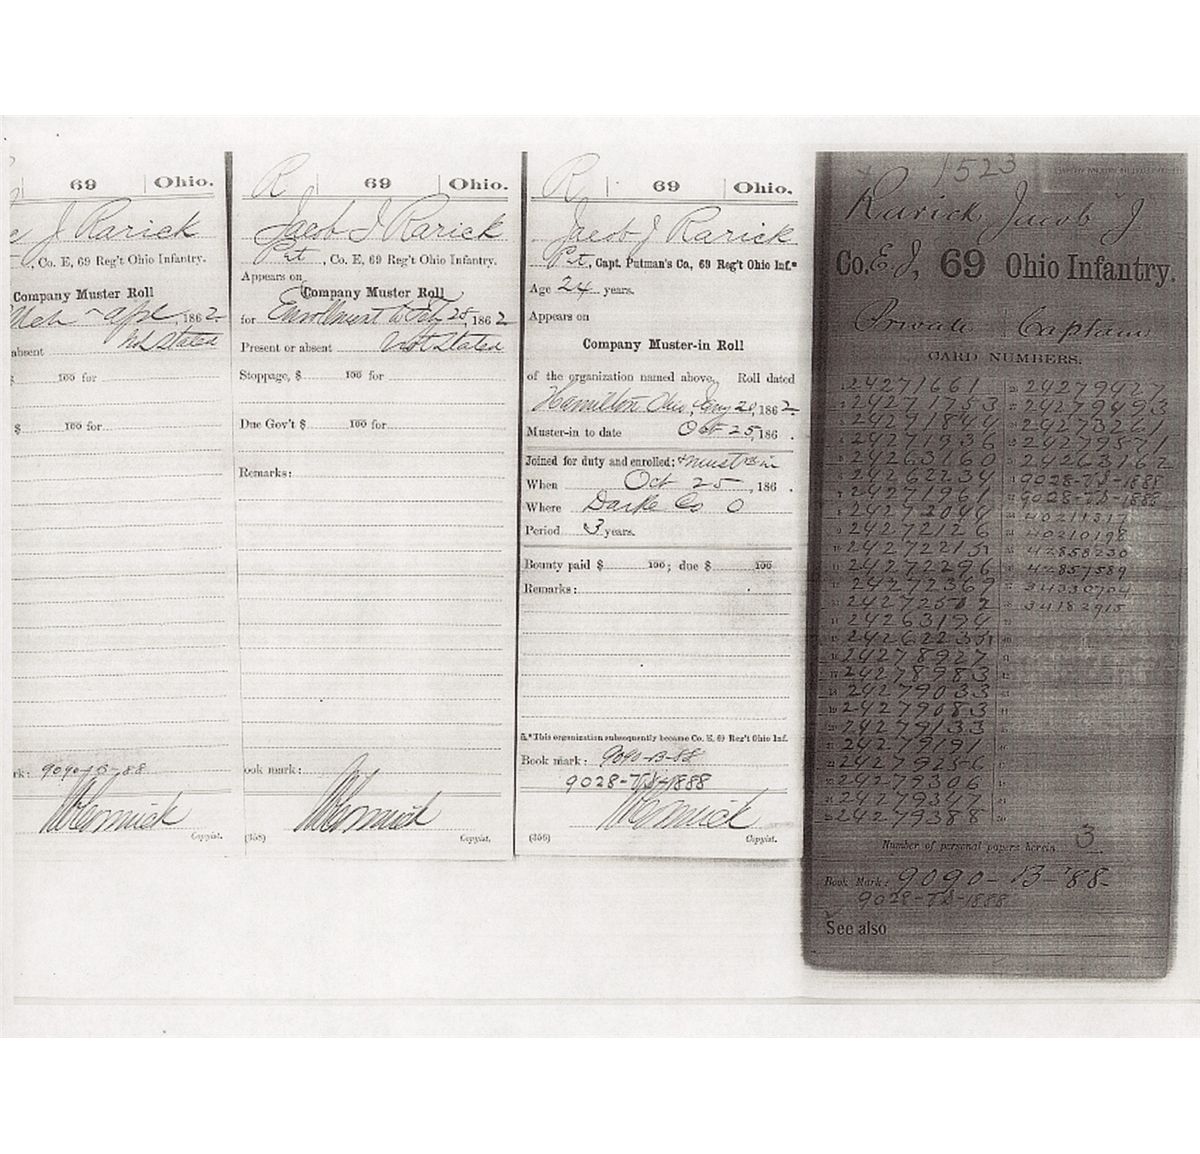 69 | Ohio.
J Rarick
, Co. E, 69 Reg't Ohio Infantry.
Company Muster Roll
Mch - Apl, 1862
absent Not Stated
$ 100 for
$ 100 for
rk: 9090-B-88
Copyist.
R | 69 | Ohio.
Jacob J Rarick
Pvt, Co. E, 69 Reg't Ohio Infantry.
Appears on
Company Muster Roll
for Enrollment to Feb 28, 1862
Present or absent Not Stated
Stoppage, $ 100 for
Due Gov't $ 100 for
Remarks:
ook mark:
(358) Copyist.
R | 69 | Ohio.
Jacob J Rarick
Pvt, Capt. Putman's Co, 69 Reg't Ohio Inf.*
Age 24 years.
Appears on
Company Muster-in Roll
of the organization named above. Roll dated
Hamilton Ohio, Jany 20, 1862
Muster-in to date Oct 25, 186 .
Joined for duty and enrolled: + must in
When Oct 25, 186 .
Where Darke Co O
Period 3 years.
Bounty paid $ 100; due $ 100
Remarks:
*This organization subsequently became Co. E, 69 Reg't Ohio Inf.
Book mark: 9090-B-88
9028-TS-1888
(356) Copyist.
1523
Rarick, Jacob J
Co. E. J, 69 Ohio Infantry.
Private | Captain
CARD NUMBERS.
24271661
24271753
24271844
24271936
24263160
24262234
24271961
24272044
24272126
24272215
24272296
24272369
24272502
24263194
24262235
24278927
24278983
24279033
24279083
24279133
24279191
24279256
24279306
24279347
24279388
24279427
24279493
24273261
24279571
24263162
9028-TS-1888
9028-TS-1888
40211317
40210198
42858230
42857589
34330704
34182915
Number of personal papers herein 3
Book Mark: 9090-B-'88-
9028-TS-1888
See also